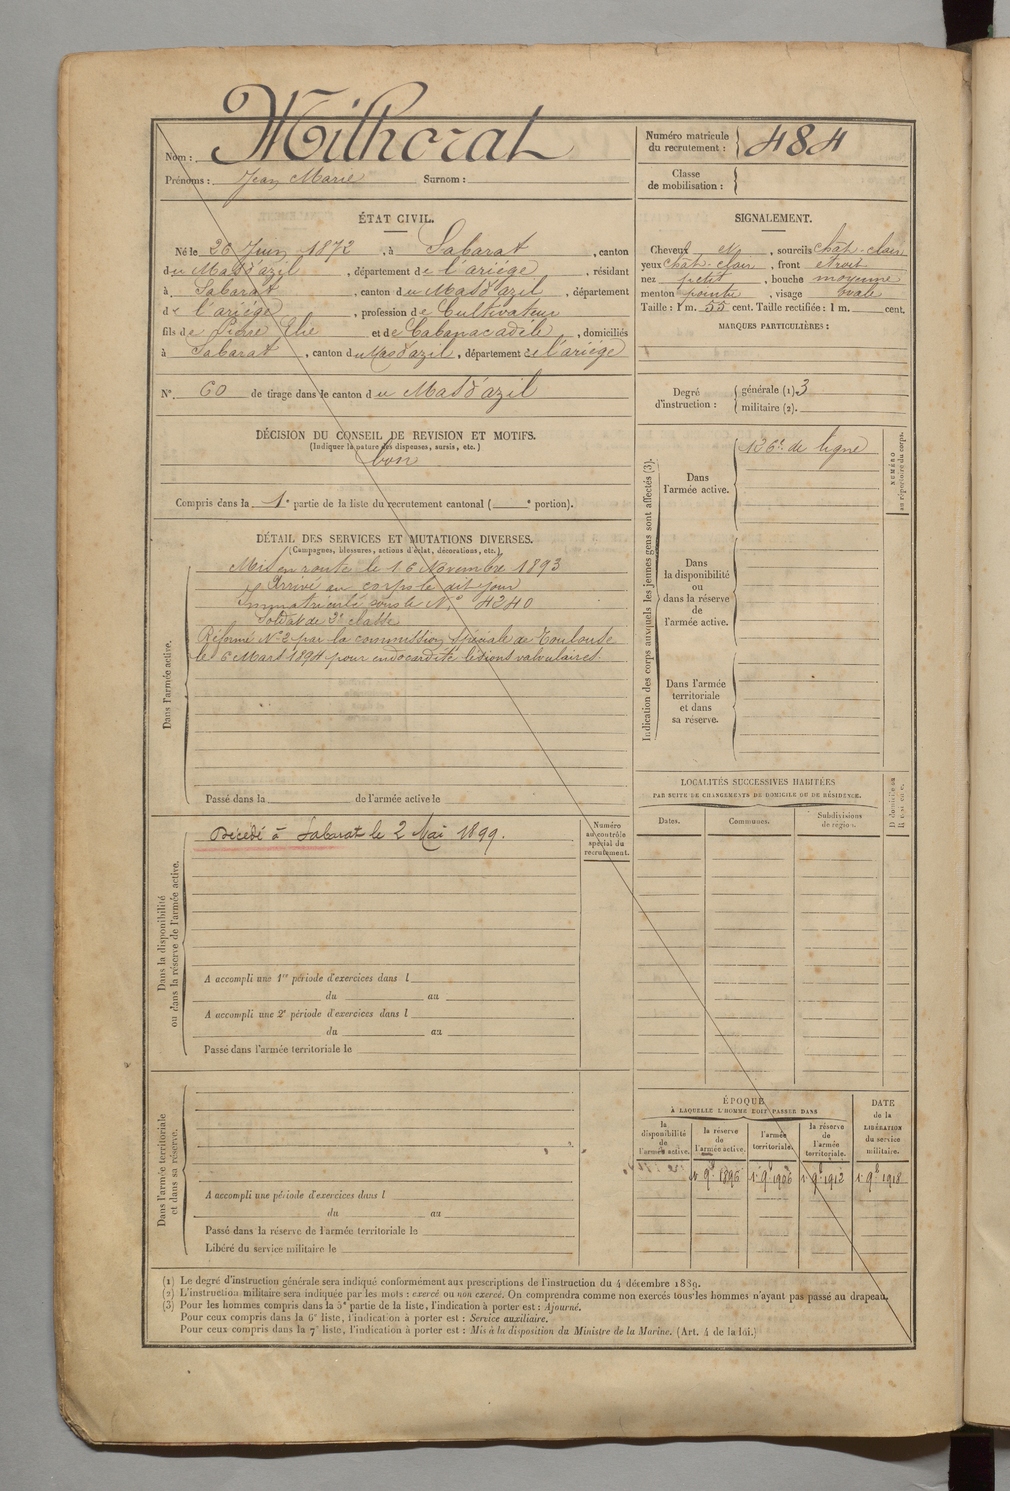 Nom : Milhorat
Prénoms : Jean Marie Surnom :
Numéro matricule du recrutement : 484
Classe de mobilisation :
ÉTAT CIVIL.
Né le 26 Juin 1872, à Sabarat, canton
du Mas d'azil, département de l'ariége, résidant
à Sabarat, canton du Mas d'azil, département
de l'ariége, profession de Cultivateur
fils de Pierre Elie et de Cabanac adéle, domiciliés
à Sabarat, canton du Mas d'azil, département de l'ariége
N° 60 de tirage dans le canton du Mas d'azil
DÉCISION DU CONSEIL DE REVISION ET MOTIFS.
(Indiquer la nature des dispenses, sursis, etc.)
bon
Compris dans la 1e partie de la liste du recrutement cantonal ( e portion).
SIGNALEMENT.
Cheveux et, sourcils chat-clair
yeux chat-clair, front etroit
nez petit, bouche moyenne
menton pointu, visage ovale
Taille : 1 m. 55 cent. Taille rectifiée : 1 m. cent.
MARQUES PARTICULIÈRES :
Degré d'instruction : générale (1). 3
militaire (2).
DÉTAIL DES SERVICES ET MUTATIONS DIVERSES.
(Campagnes, blessures, actions d'éclat, décorations, etc.)
Dans l'armée active.
Mis en route le 16 Novembre 1893
Arrivé au corps le dit jour
Immatriculé sous le N° 4240
Soldat de 2e classe
Réformé N° 2 par la commission spéciale de Toulouse
le 6 Mars 1894 pour endocardite lésions valvulaires.
Passé dans la de l'armée active le
Indication des corps auxquels les jeunes gens sont affectés (3).
NUMÉRO au répertoire du corps.
Dans l'armée active.
126e de ligne
Dans la disponibilité ou dans la réserve de l'armée active.
Dans l'armée territoriale et dans sa réserve.
Dans la disponibilité ou dans la réserve de l'armée active.
Décédé à Sabarat le 2 Mai 1899.
Numéro au contrôle spécial du recrutement.
A accompli une 1re période d'exercices dans l
du au
A accompli une 2e période d'exercices dans l
du au
Passé dans l'armée territoriale le
LOCALITÉS SUCCESSIVES HABITÉES
PAR SUITE DE CHANGEMENTS DE DOMICILE OU DE RÉSIDENCE.
Dates. Communes. Subdivisions de région.
Dans l'armée territoriale et dans sa réserve.
A accompli une période d'exercices dans l
du au
Passé dans la réserve de l'armée territoriale le
Libéré du service militaire le
ÉPOQUE
À LAQUELLE L'HOMME DOIT PASSER DANS
la disponibilité de l'armée active.
la réserve de l'armée active.
l'armée territoriale.
la réserve de l'armée territoriale.
DATE de la LIBÉRATION du service militaire.
1er 9b 1896 1er 9b 1906 1er 9b 1912 1er 9b 1918
(1) Le degré d'instruction générale sera indiqué conformément aux prescriptions de l'instruction du 4 décembre 1889.
(2) L'instruction militaire sera indiquée par les mots : exercé ou non exercé. On comprendra comme non exercés tous les hommes n'ayant pas passé au drapeau.
(3) Pour les hommes compris dans la 5e partie de la liste, l'indication à porter est : Ajourné.
Pour ceux compris dans la 6e liste, l'indication à porter est : Service auxiliaire.
Pour ceux compris dans la 7e liste, l'indication à porter est : Mis à la disposition du Ministre de la Marine. (Art. 4 de la loi.)